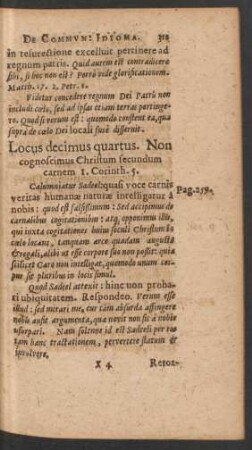 De Commvni Idioma. 312
in resurectione excelluit pertinere ad
regnum patris. Quid autem est contradicere
sibi, si hoc non est? Petrò vide glorificationem.
Matth. 17. 2. Petr. 1.
Videtur concedere regnum Dei Patris non
includi cœlo, sed ad ipsas etiam terras pertinge-
re. Quod si verum est: quomodo constent ea, qua
supra de cœlo Dei locali suit disseruit.
Locus decimus quartus. Non
cognoscimus Christum secundum
carnem 1. Corinth. 5.
Calumniatur Sadeel: quasi voce carnis
veritas humanæ naturæ intelligatur à
nobis: quod est falsissimum: Sed accipimus de
carnalibus cogitationibus: atq. opponimus iis,
qui iuxta cogitationes huius seculi Christum in
cœlo locant, tanquam arce quadam augusta
& regali, alibi ut esse corpore suo non possit: quia
scilicet Caro non intelligat, quomodo unum cor-
pus se pluribus in locis simul.
Quod Sadeel attexit: hinc non proba-
ri ubiquitatem. Respondeo. Verum esse
illud: sed mirari me, cur tàm absurda affingere
nobis ausit argumenta, quæ novit non sic à nobis
usurpari. Nam solenne id est Sadeeli per to-
tam hanc tractationem, pervertere statum &
involvere,
Pag. 258.
X 4 Retor-